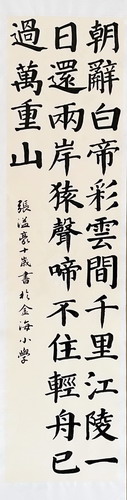 朝辭白帝彩雲間千里江陵一
日還兩岸猿聲啼不住輕舟已
過萬重山
張溢豪十歲書於金海小學